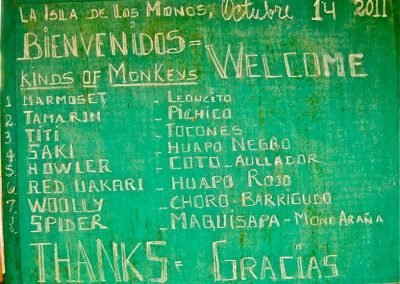 LA ISLA DE LOS MONOS, Octubre 14 2011
BIENVENIDOS = WELCOME
KINDS OF MONKEYS
1. MARMOSET - LEONCITO
2. TAMARIN - PICHICO
3. TITI - TOCONES
4. SAKI - HUAPO NEGRO
5. HOWLER - COTO-AULLADOR
6. RED UAKARI - HUAPO ROJO
7. WOOLLY - CHORO-BARRIGUDO
8. SPIDER - MAQUISAPA - MONO ARAÑA
THANKS = GRACIAS